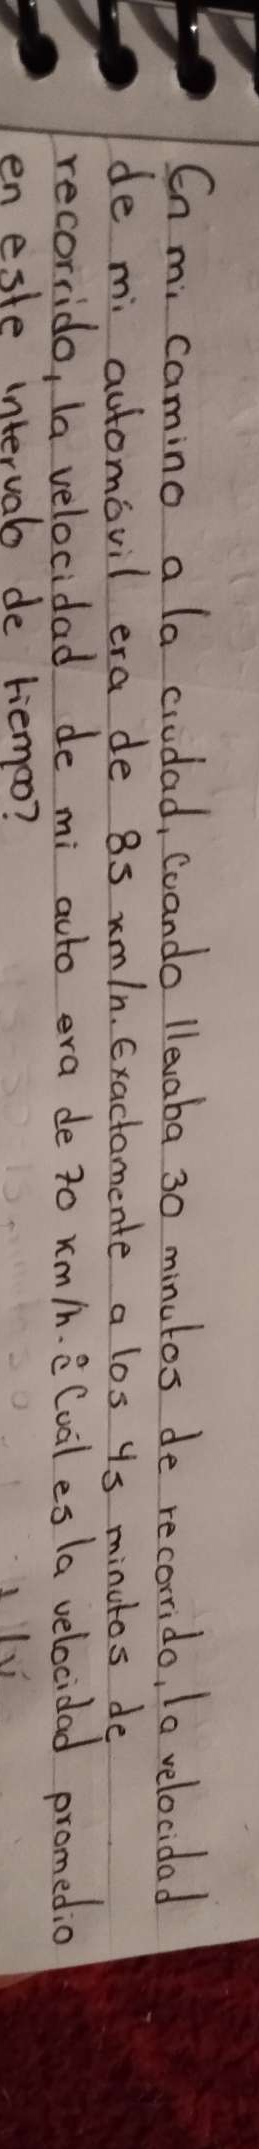 En mi camino a la ciudad, Cuando llevaba 30 minutos de recorrido, la velocidad
de mi automóvil era de 85 km/h. Exactamente a los 45 minutos de
recorrido, la velocidad de mi auto era de 70 km/h. ¿Cuál es la velocidad promedio
en este intervalo de tiempo?